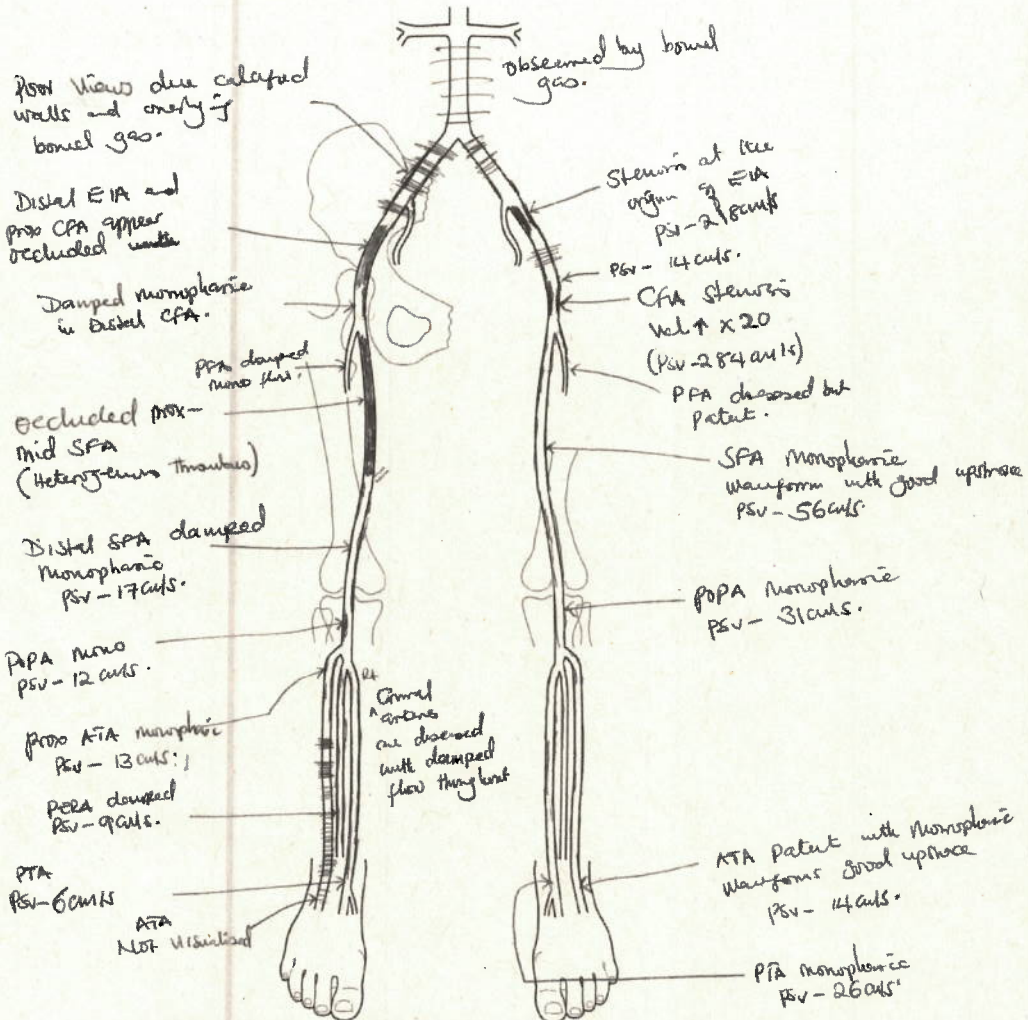 Poor views due calcified
walls and overlying
bowel gas.
Distal EIA and
prox CFA appear
occluded
Damped monophasic
in Distal CFA.
PFA damped
mono flow.
occluded prox-
mid SFA
(Heterogenous thrombus)
Distal SFA damped
monophasic
PSV- 17cm/s.
POPA mono
PSV- 12 cm/s.
prox ATA monophasic
PSV- 13cm/s.
PERA damped
PSV- 9cm/s.
PTA
PSV- 6cm/s
ATA
Not visualised
RT
Crural
arteries
are diseased
with damped
flow throughout
obscured by bowel
gas.
Stenosis at the
origin of EIA
PSV- 218cm/s
PSV- 14cm/s.
CFA stenosis
Vel ↑ x 20
(PSV-284cm/s)
PFA diseased but
patent.
SFA monophasic
waveform with good upstroke
PSV- 56cm/s.
POPA monophasic
PSV- 31cm/s.
ATA Patent with monophasic
waveforms good upstroke
PSV- 14cm/s.
PTA monophasic
PSV- 26cm/s